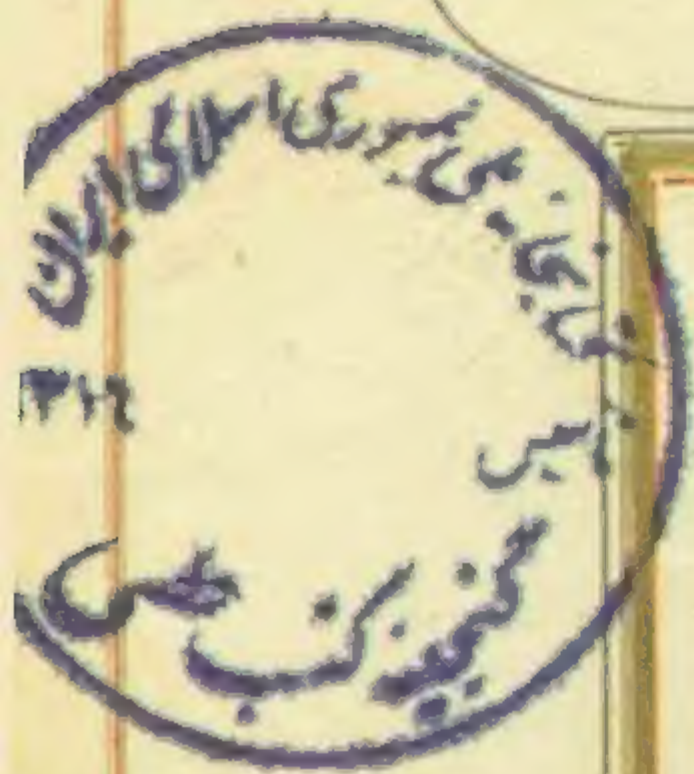 کتابخانه ملی جمهوری اسلامی ایران
تاسیس
۳۱۶
گنجینه کتب خطی